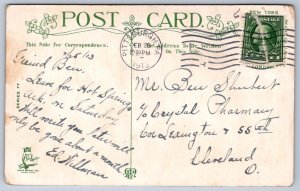 POST CARD
This Side For Correspondence.
The Address To Be Written On This Side.
PITTSBURGH, PA
FEB 26
1913
NEW YORK
2/25/13
Friend Ben,
Leave for Hot Springs
Ark. on Saturday
Will write you later will
only be gone about a month
Ed. Killman
Mr Ben Shubert
c/o Crystal Pharmacy
Cor Lexington & 55th
Cleveland
O.